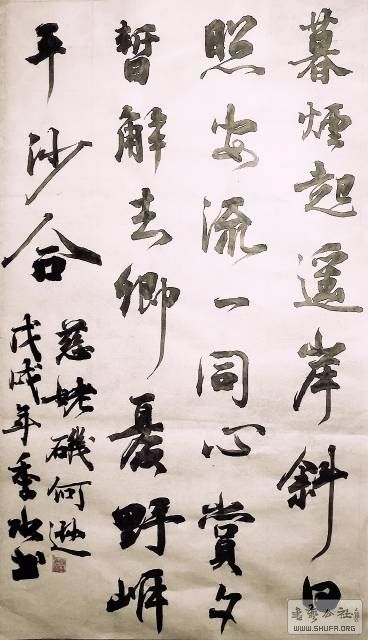 暮煙起遥岸斜日
照安流一同心賞夕
暫解去鄉憂野岸
平沙合
慈姥磯何遜
戊戌年季冰书
書藝公社
WWW.SHUFA.ORG